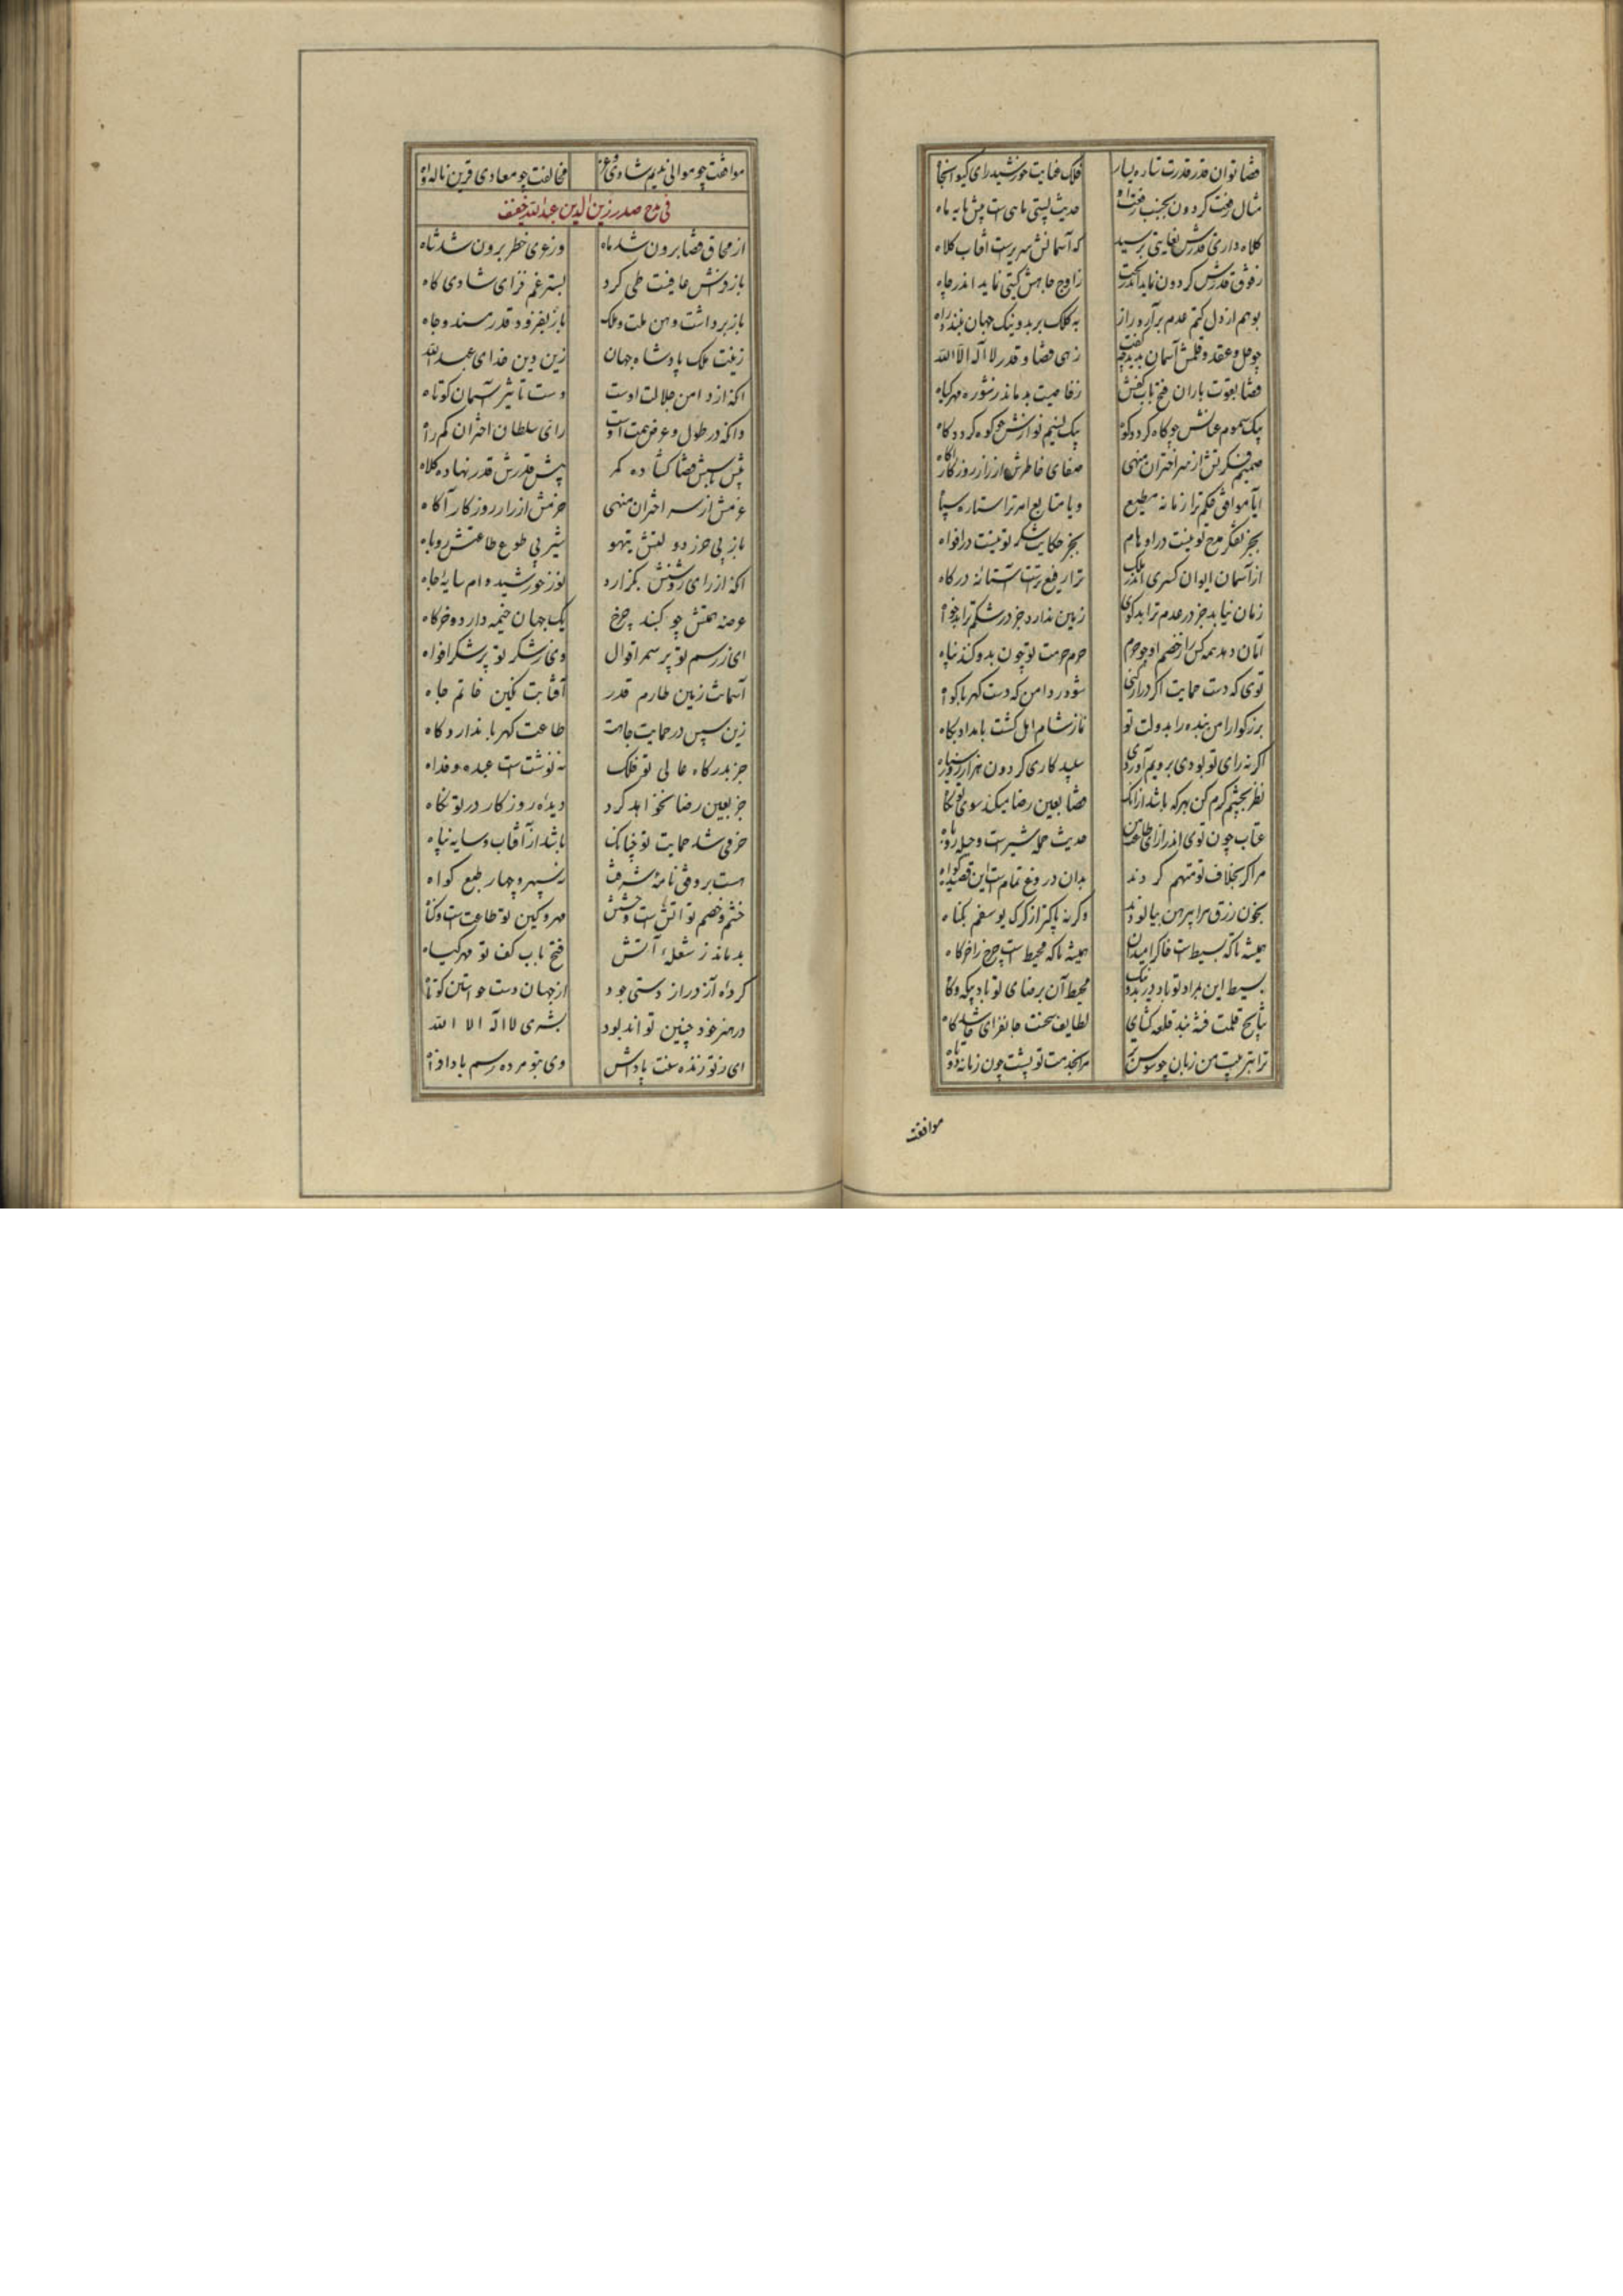 قضا توان قدر قدرت ستاره یسار فلک عنایت خورشید رای کیوان جاه
مثال رفعت کردون بجنب رفعت او حدیث پستی ماهی است پیش پایه ماه
کلاه داری قدرش بغایتی برسید که آسمانش سریرست آفتاب کلاه
ز فوق قدرش کردون نماید اندر تحت ز اوج جاهش کیتی نماید اندر چاه
بوهم از دل کتم عدم برآرد راز به کلک بر بد و نیک جهان ببندد راه
چو حل و عقد و قلمش آسمان بدید چه گفت زهی قضا و قدر لا اله الا الله
قضا بقوت باران فتح باب کفش ز خاصیت بدماند ز شوره مهر کیاه
بیک سموم عتابش چو کاه کردد کوه بیک نسیم نوازش چو کوه کردد کاه
ضمیر فکرتش از سر اختران منهی صفای خاطرش از راز روزکار آکاه
ایا موافق حکم ترا زمانه مطیع و یا متابع امر ترا ستاره سپاه
بجز تفکر مدح تو نیست در اوهام بجز حکایت شکر تو نیست در افواه
از آسمان ایوان کسری اندر ملک ترا رفیع ترست آستانه درکاه
زمان نیابد جز در عدم ترا بدکوی زمین ندارد جز در شکم ترا بدخواه
امان دهد همه کس را ز خصم او چو حرم حرم حرمت تو چون بدو کند پناه
توی که دست حمایت اکر دراز کنی شود ز دامن که دست کهربا کوتاه
بزرکوارا من بنده را بدولت تو نماز شام امل کشت بامداد پکاه
اکر نه رای تو بودی برویم آوردی سپید کاری کردون هزار روز سیاه
نظر بچشم کرم کن بهر که باشد از آنک قضا بعین رضا میکند سوی تو نکاه
عتاب چون توی اندر ازای طاعت من حدیث حمله شیرست و حیله روباه
مرا کر بخلاف تو متهم کردند بدان دروغ تمام است این قصیده کواه
بخون رزق مرا پیرهن بیالودند وکرنه پاکتر از کرک یوسفم بکناه
همیشه تا که بسیط است خاک را میدان همیشه تا که محیط است چرخ را خرکاه
بسیط این بمراد تو باد در بد و نیک محیط آن برضای تو باد بیکه و کاه
نتایج قلمت فتنه بند قلعه کشای لطایف سخنت جانفزای حاسد کاه
ترا بتربیت من زبان چو سوسن تر مرا بخدمت تو پشت چون زمانه دوتاه
موافقت
موافقت چو موالی ندیم شادی و عز مخالفت چو معادی قرین ناله و آه
فی مدح صدر زین الدین عبدالله
از محاق قضا برون شد ماه وز عری خطر برون شد شاه
باز فراش عافیت طی کرد بستر غم فزای شادی کاه
باز برداشت وهن ملت و ملک باز بفزود قدر مسند و جاه
زینت ملک پادشاه جهان زین دین خدای عبدالله
آنکه از دامن جلالت اوست دست تاثیر آسمان کوتاه
وانکه در طول و عرض همت اوست رای سلطان اختران کم راه
پیش باسش قضا کشاده کمر پیش قدرش قدر نهاده کلاه
عزمش از سر اختران منهی حزمش از راز روزکار آکاه
باز بی حرز دولتش تیهو شیر بی طوع طاعتش روباه
آنکه از رای روشنش بکزارد نور خورشید وام سایه جاه
عرصه همتش چو کنبد چرخ یک جهان خیمه دارد و خرکاه
ای ز رسم تو پر سمر اقوال وی ز شکر تو پر شکر افواه
آسمانت زمین طارم قدر آفتابت نکین خاتم جاه
زین سپس در حمایت جاهت طاعت کهربا ندارد کاه
جز بدرکاه عالی تو فلک ننوشتست عبده و فداه
جز بعین رضا نخواهد کرد دیده روزکار در تو نکاه
حرفی شد حمایت تو چنانک باشد از آفتاب و سایه پناه
هست بر وفق نامه شرفت نه سپهر و چهار طبع کواه
خشم و خصم تو آتش است و حشیش مهر و کین تو طاعت است و کناه
بدماند ز شعله آتش فتح باب کف تو مهر کیاه
کرده آز دراز دستی جود از جهان دست جود استین کوتاه
در هنر خود چنین تواند بود بشری لا اله الا الله
ای ز تو زنده سنت پاداش وی بتو مرده رسم بادافراه